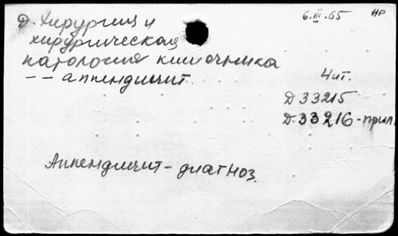 Д. Хирургия и
6.III.65
НР
хирургическая
патология кишечника
-- аппендицит.
Чит.
Д 33215
Д-33216-прил.
Аппендицит - диагноз.